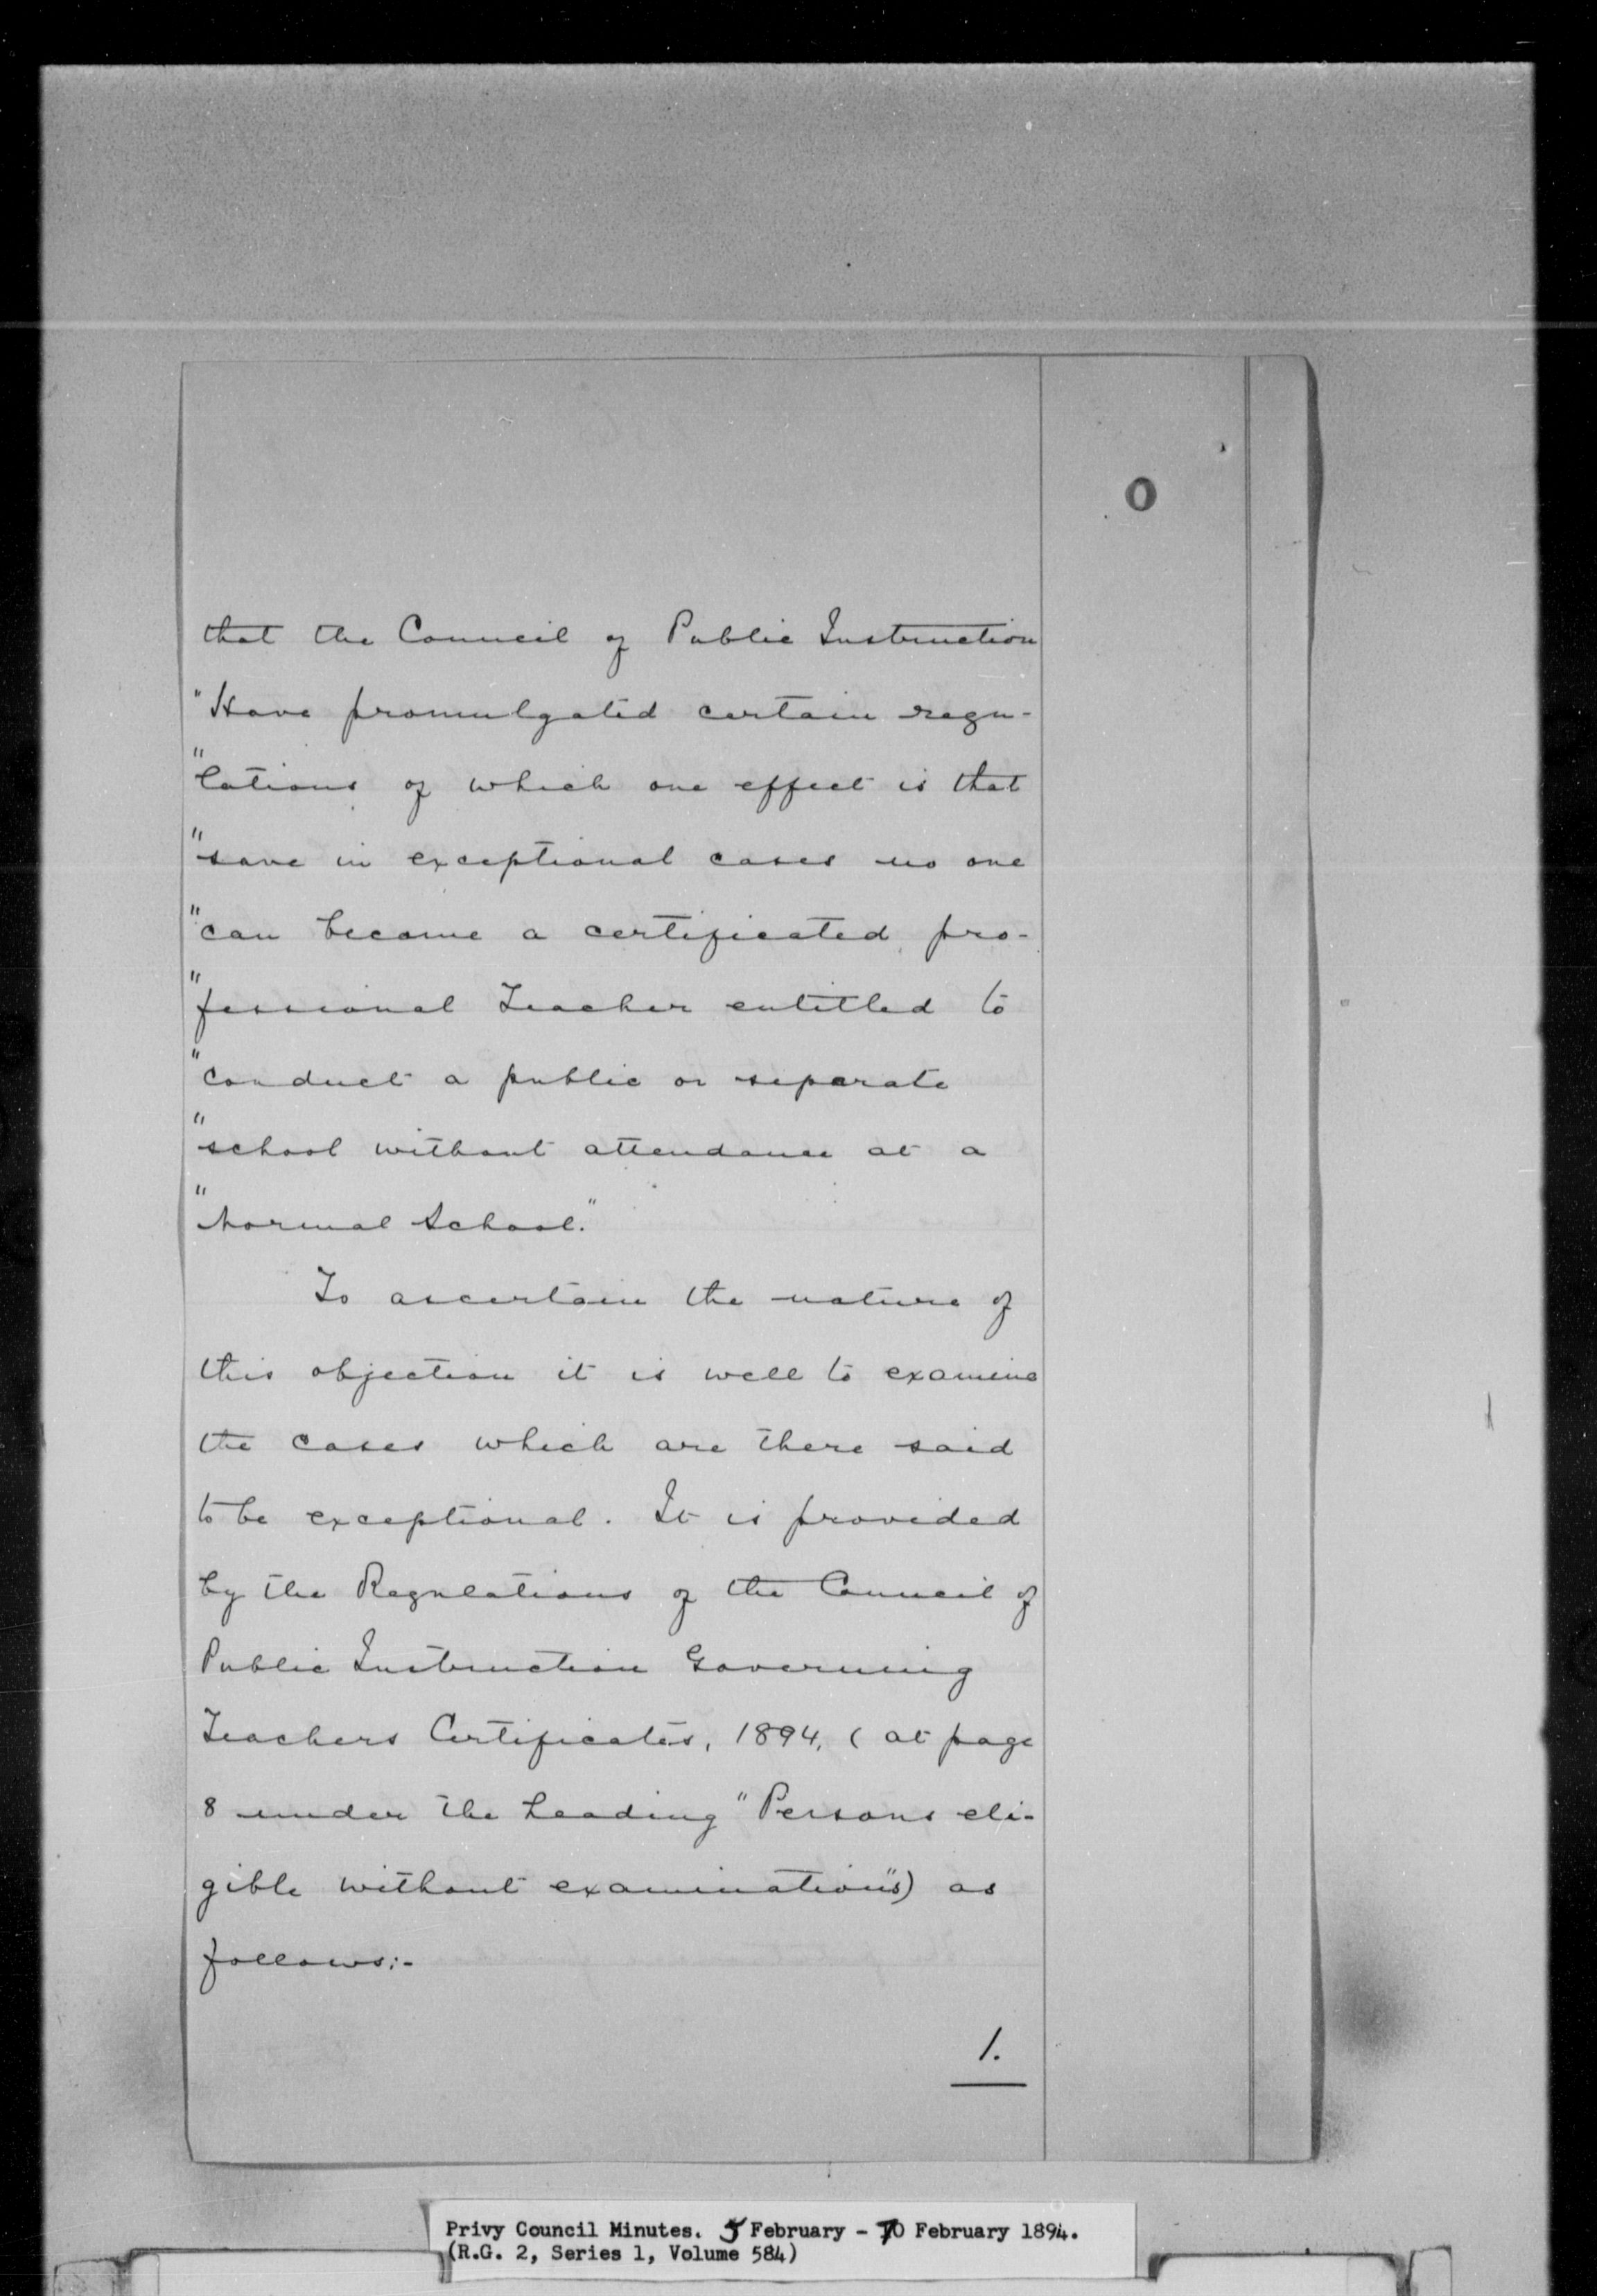 O
that the Council of Public Instruction
"Have promulgated certain regu-
"lations of which one effect is that
"save in exceptional cases no one
"can become a certificated pro-
"fessional Teacher entitled to
"conduct a public or separate
"school without attendance at a
"Normal School."
To ascertain the nature of
this objection it is well to examine
the cases which are there said
to be exceptional. It is provided
by the Regulations of the Council of
Public Instruction Governing
Teachers Certificates, 1894, (at page
8 under the heading "Persons eli-
gible without examination") as
follows:-
1.
Privy Council Minutes. 5 February - 10 February 1894.
(R.G. 2, Series 1, Volume 584)